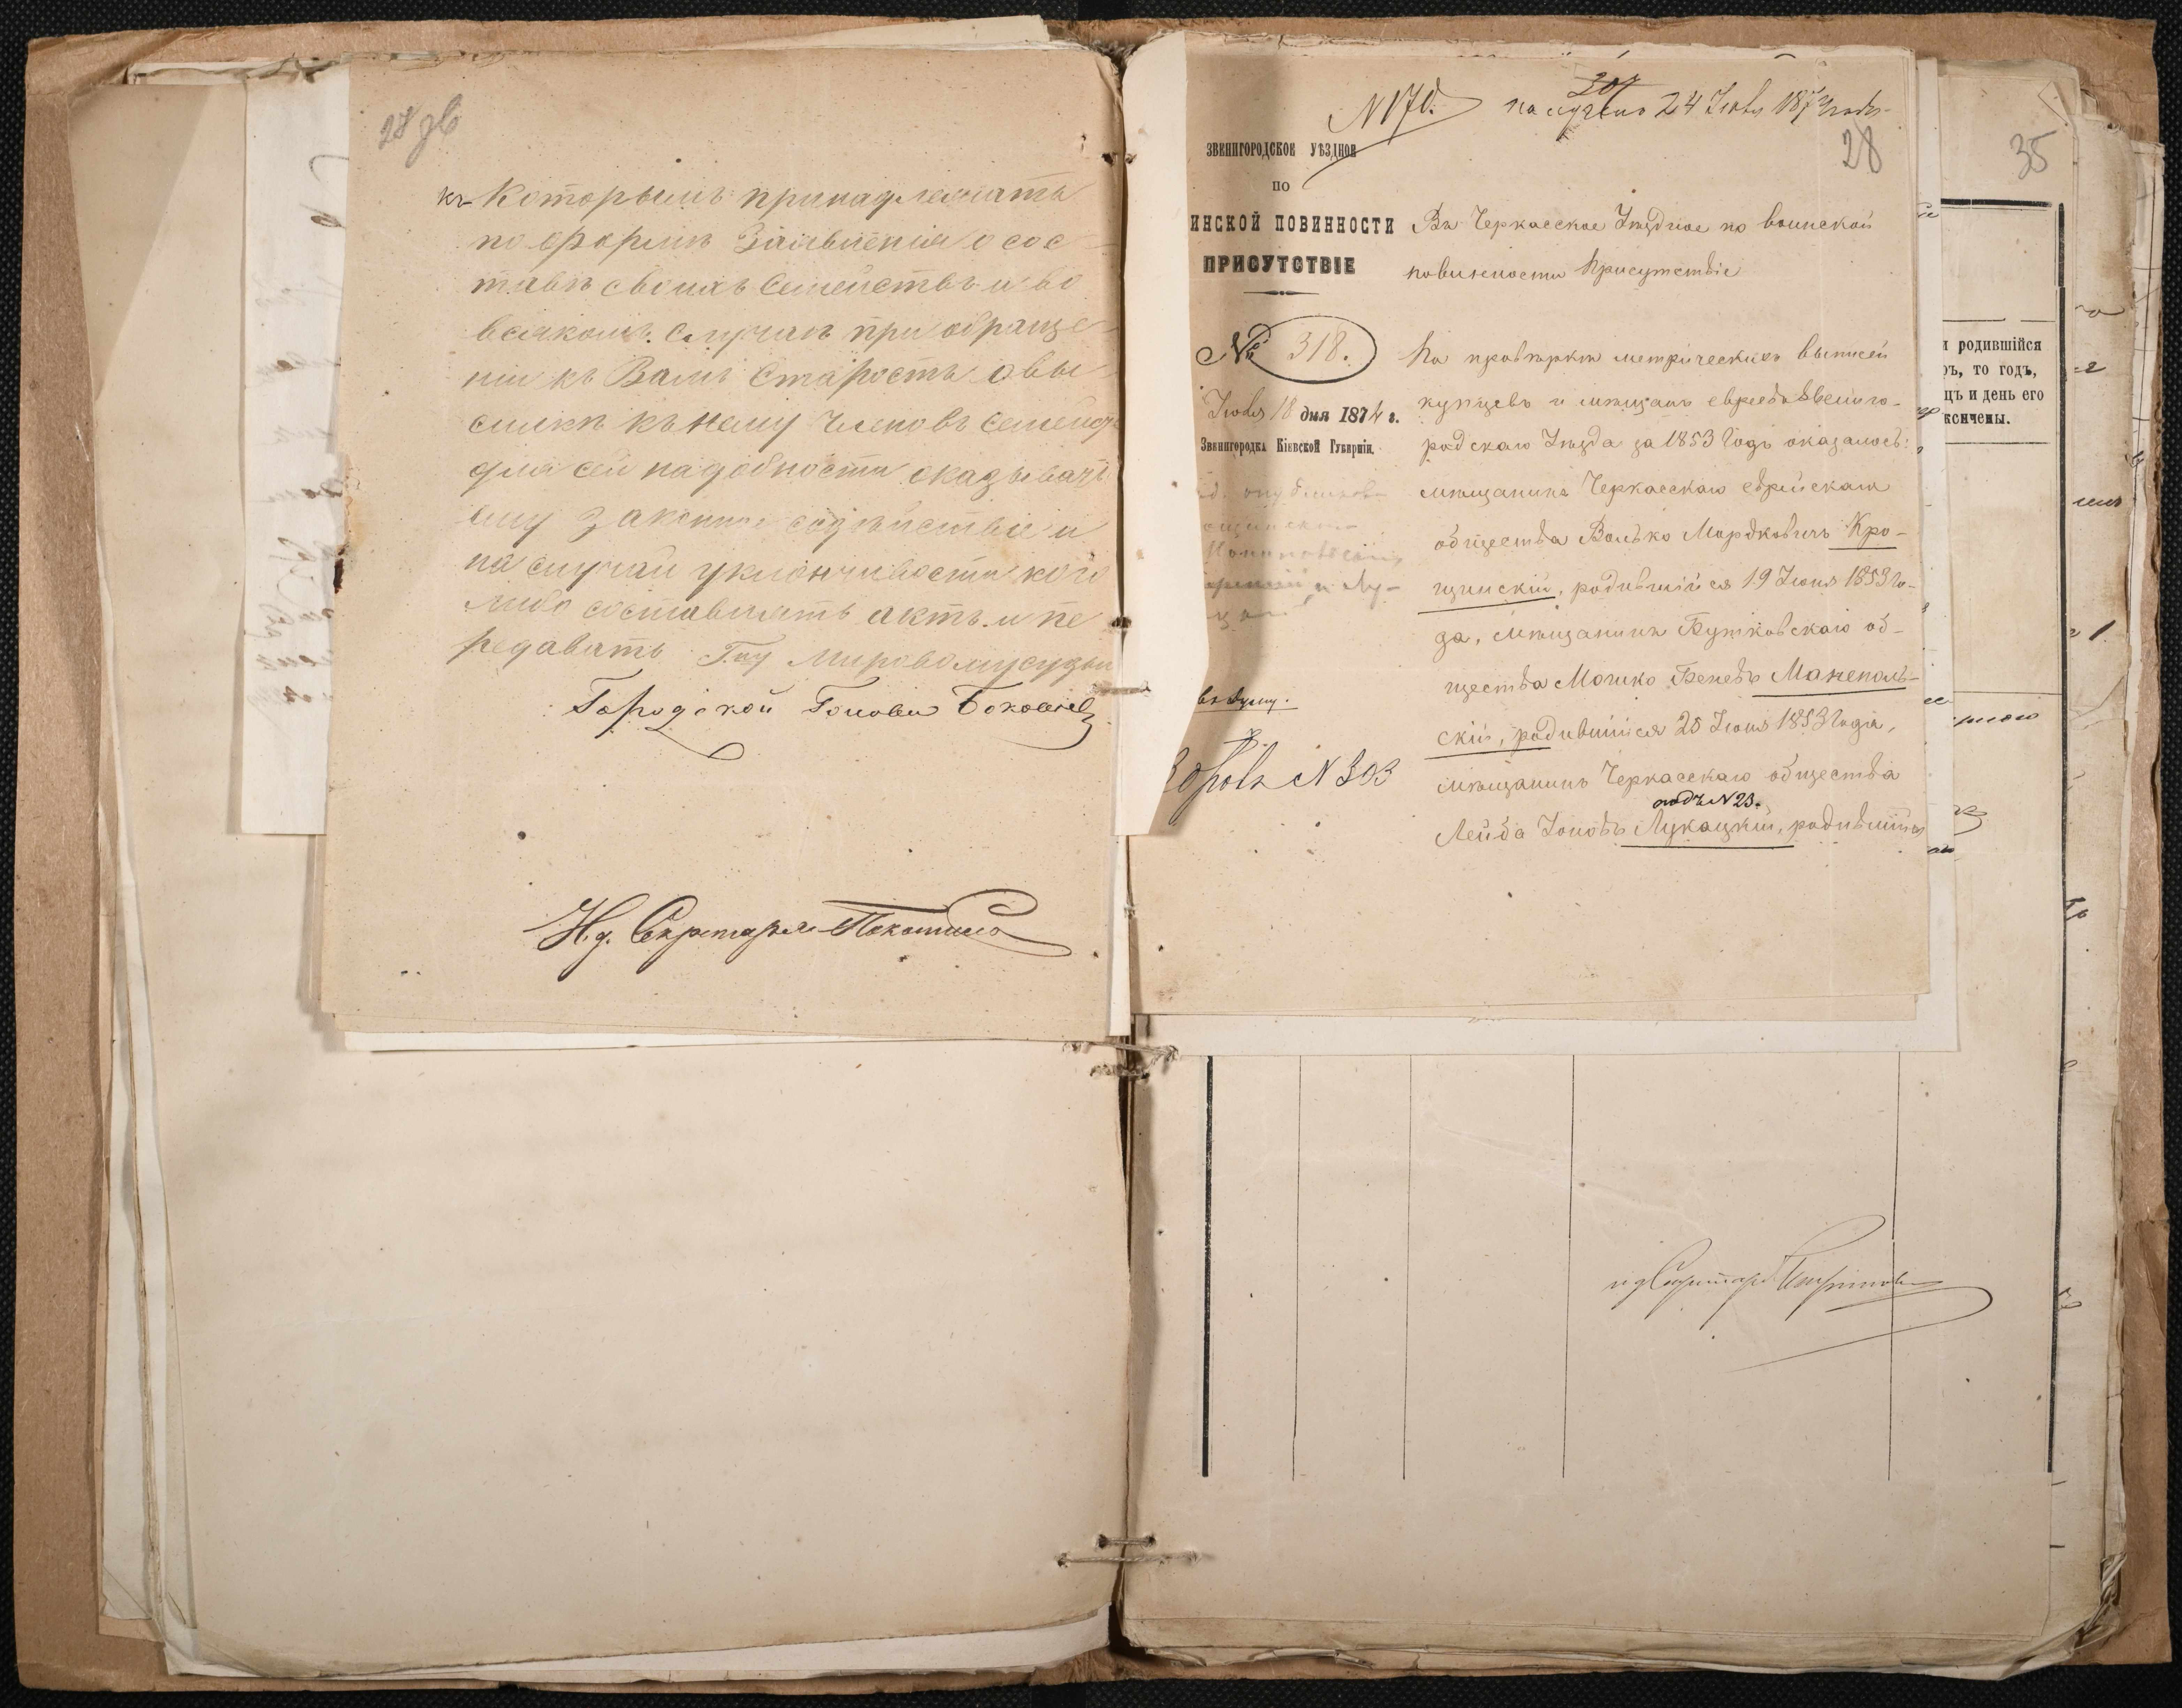 28 зв
къ которымъ принадлежатъ
по формѣ заявленія о сос
тавѣ своихъ семействъ и во
всякомъ случаѣ при обраще
ніи къ Вамъ Старостъ о вы
сылкѣ къ нему членовъ семейст
для сей надобности оказывать
ему законное содѣйствіе и
на случай уклончивости кого
либо составлять актъ и пе
редавать Г-ну Мировому судьи
Городской Голова
И.д. Секретаря
N 170. получено 24 Іюля 1874 года
28
ЗВЕНИГОРОДСКОЕ УѢЗДНОЕ
ПО
ИНСКОЙ ПОВИННОСТИ
ПРИСУТСТВІЕ
№ 318.
Іюля 18 дня 1874 г.
Звенигородка Кіевской Губерніи.
въ Думу.
N 303
Въ Черкасское Уѣздное по воинской
повинности Присутствіе
По провѣркѣ метрическихъ выписей
купцевъ и мѣщанъ евреевъ Звениго-
родскаго Уѣзда за 1853 годъ оказалось:
мѣщанинъ Черкасскаго еврейскаго
общества Волько Мордковичъ Кро-
щинскій, родившійся 19 Іюня 1853 го-
да, мѣщанинъ Бужковскаго об-
щества Мошко Беневъ Манеполь-
скій, родившійся 25 Іюня 1853 года,
мѣщанинъ Черкасскаго общества
подъ N 23.
Лейба Іоновъ Лукацкій, родившійся
35
и родившійся
ръ, то годъ,
цъ и день его
кончены.